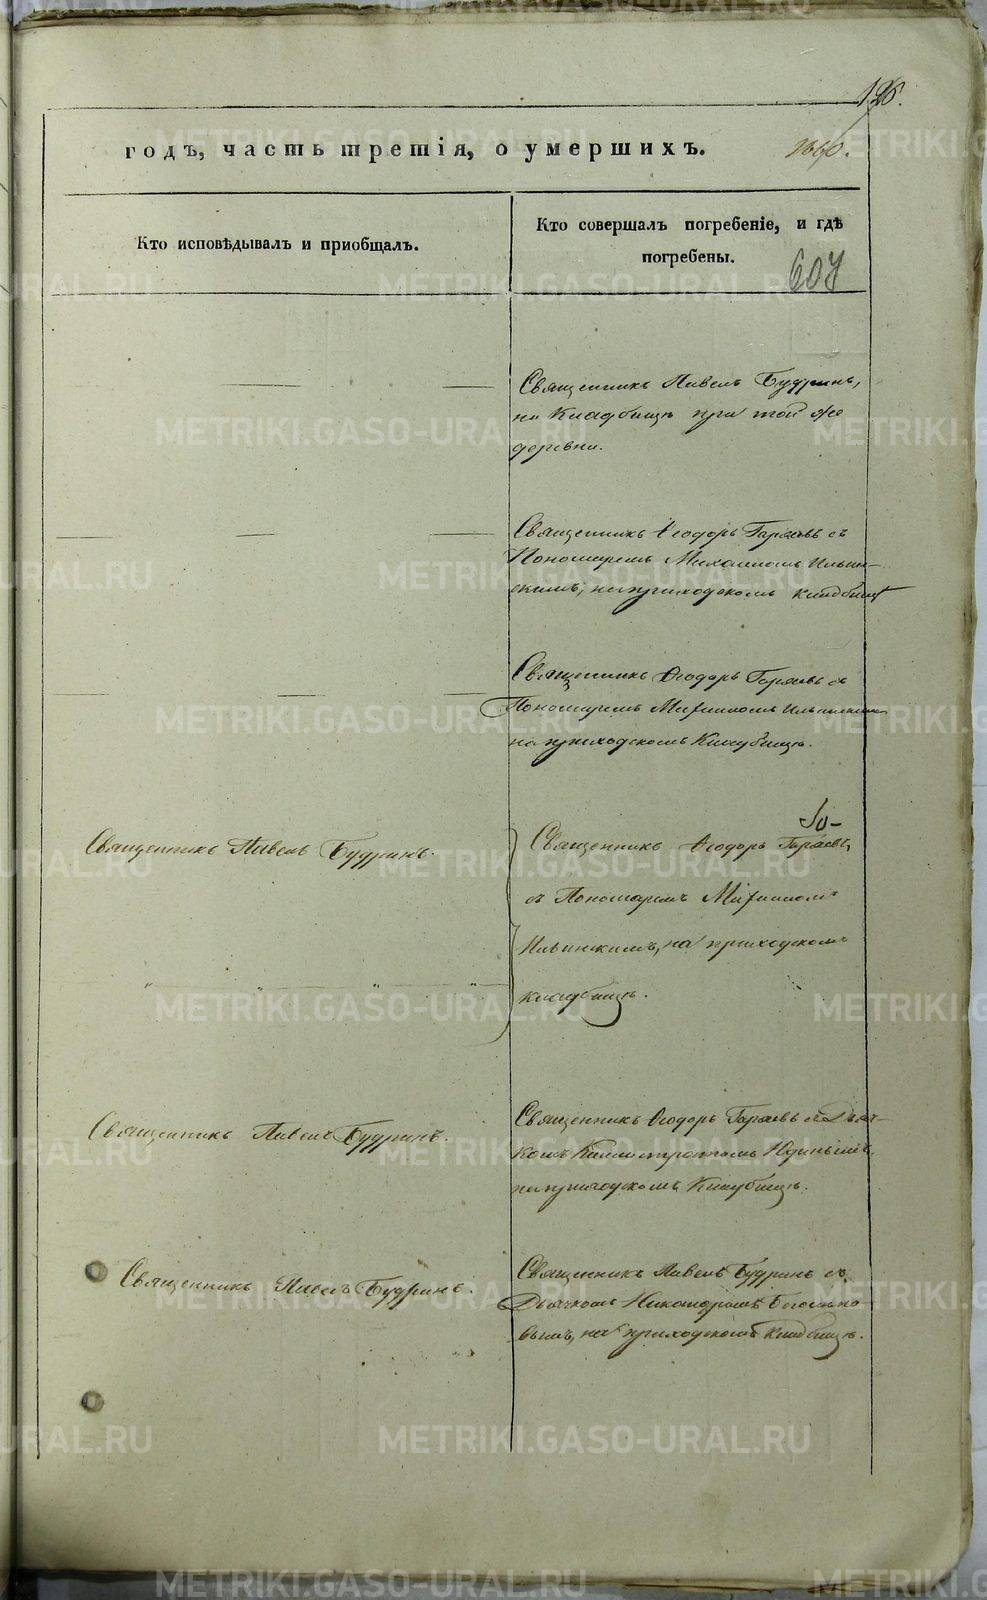 126.
годъ, часть третія, о умершихъ. 1860.
Кто исповѣдывалъ и приобщалъ.
Кто совершалъ погребеніе, и гдѣ
погребены.
607
Священникъ Павелъ Будринъ,
на Кладбищѣ при той же
деревни.
Священникъ Ѳеодоръ Горяевъ съ
Пономаремъ Михаиломъ Ильин-
скимъ, на приходскомъ кладбищѣ
Священникъ Ѳеодоръ Горяевъ съ
Пономаремъ Михаиломъ Ильинскимъ
на приходскомъ Кладбищѣ.
Священникъ Павелъ Будринъ.
Священникъ Ѳеодоръ Горяевъ,
съ Пономаремъ Михаиломъ
Ильинскимъ, на приходскомъ
кладбищѣ.
Священникъ Павелъ Будринъ.
Священникъ Ѳеодоръ Горяевъ съ Дьяч-
комъ
на приходскомъ Кладбищѣ.
Священникъ Павелъ Будринъ.
Священникъ Павелъ Будринъ съ
Дьячкомъ Никандромъ
на приходскомъ Кладбищѣ.
METRIKI.GASO-URAL.RU